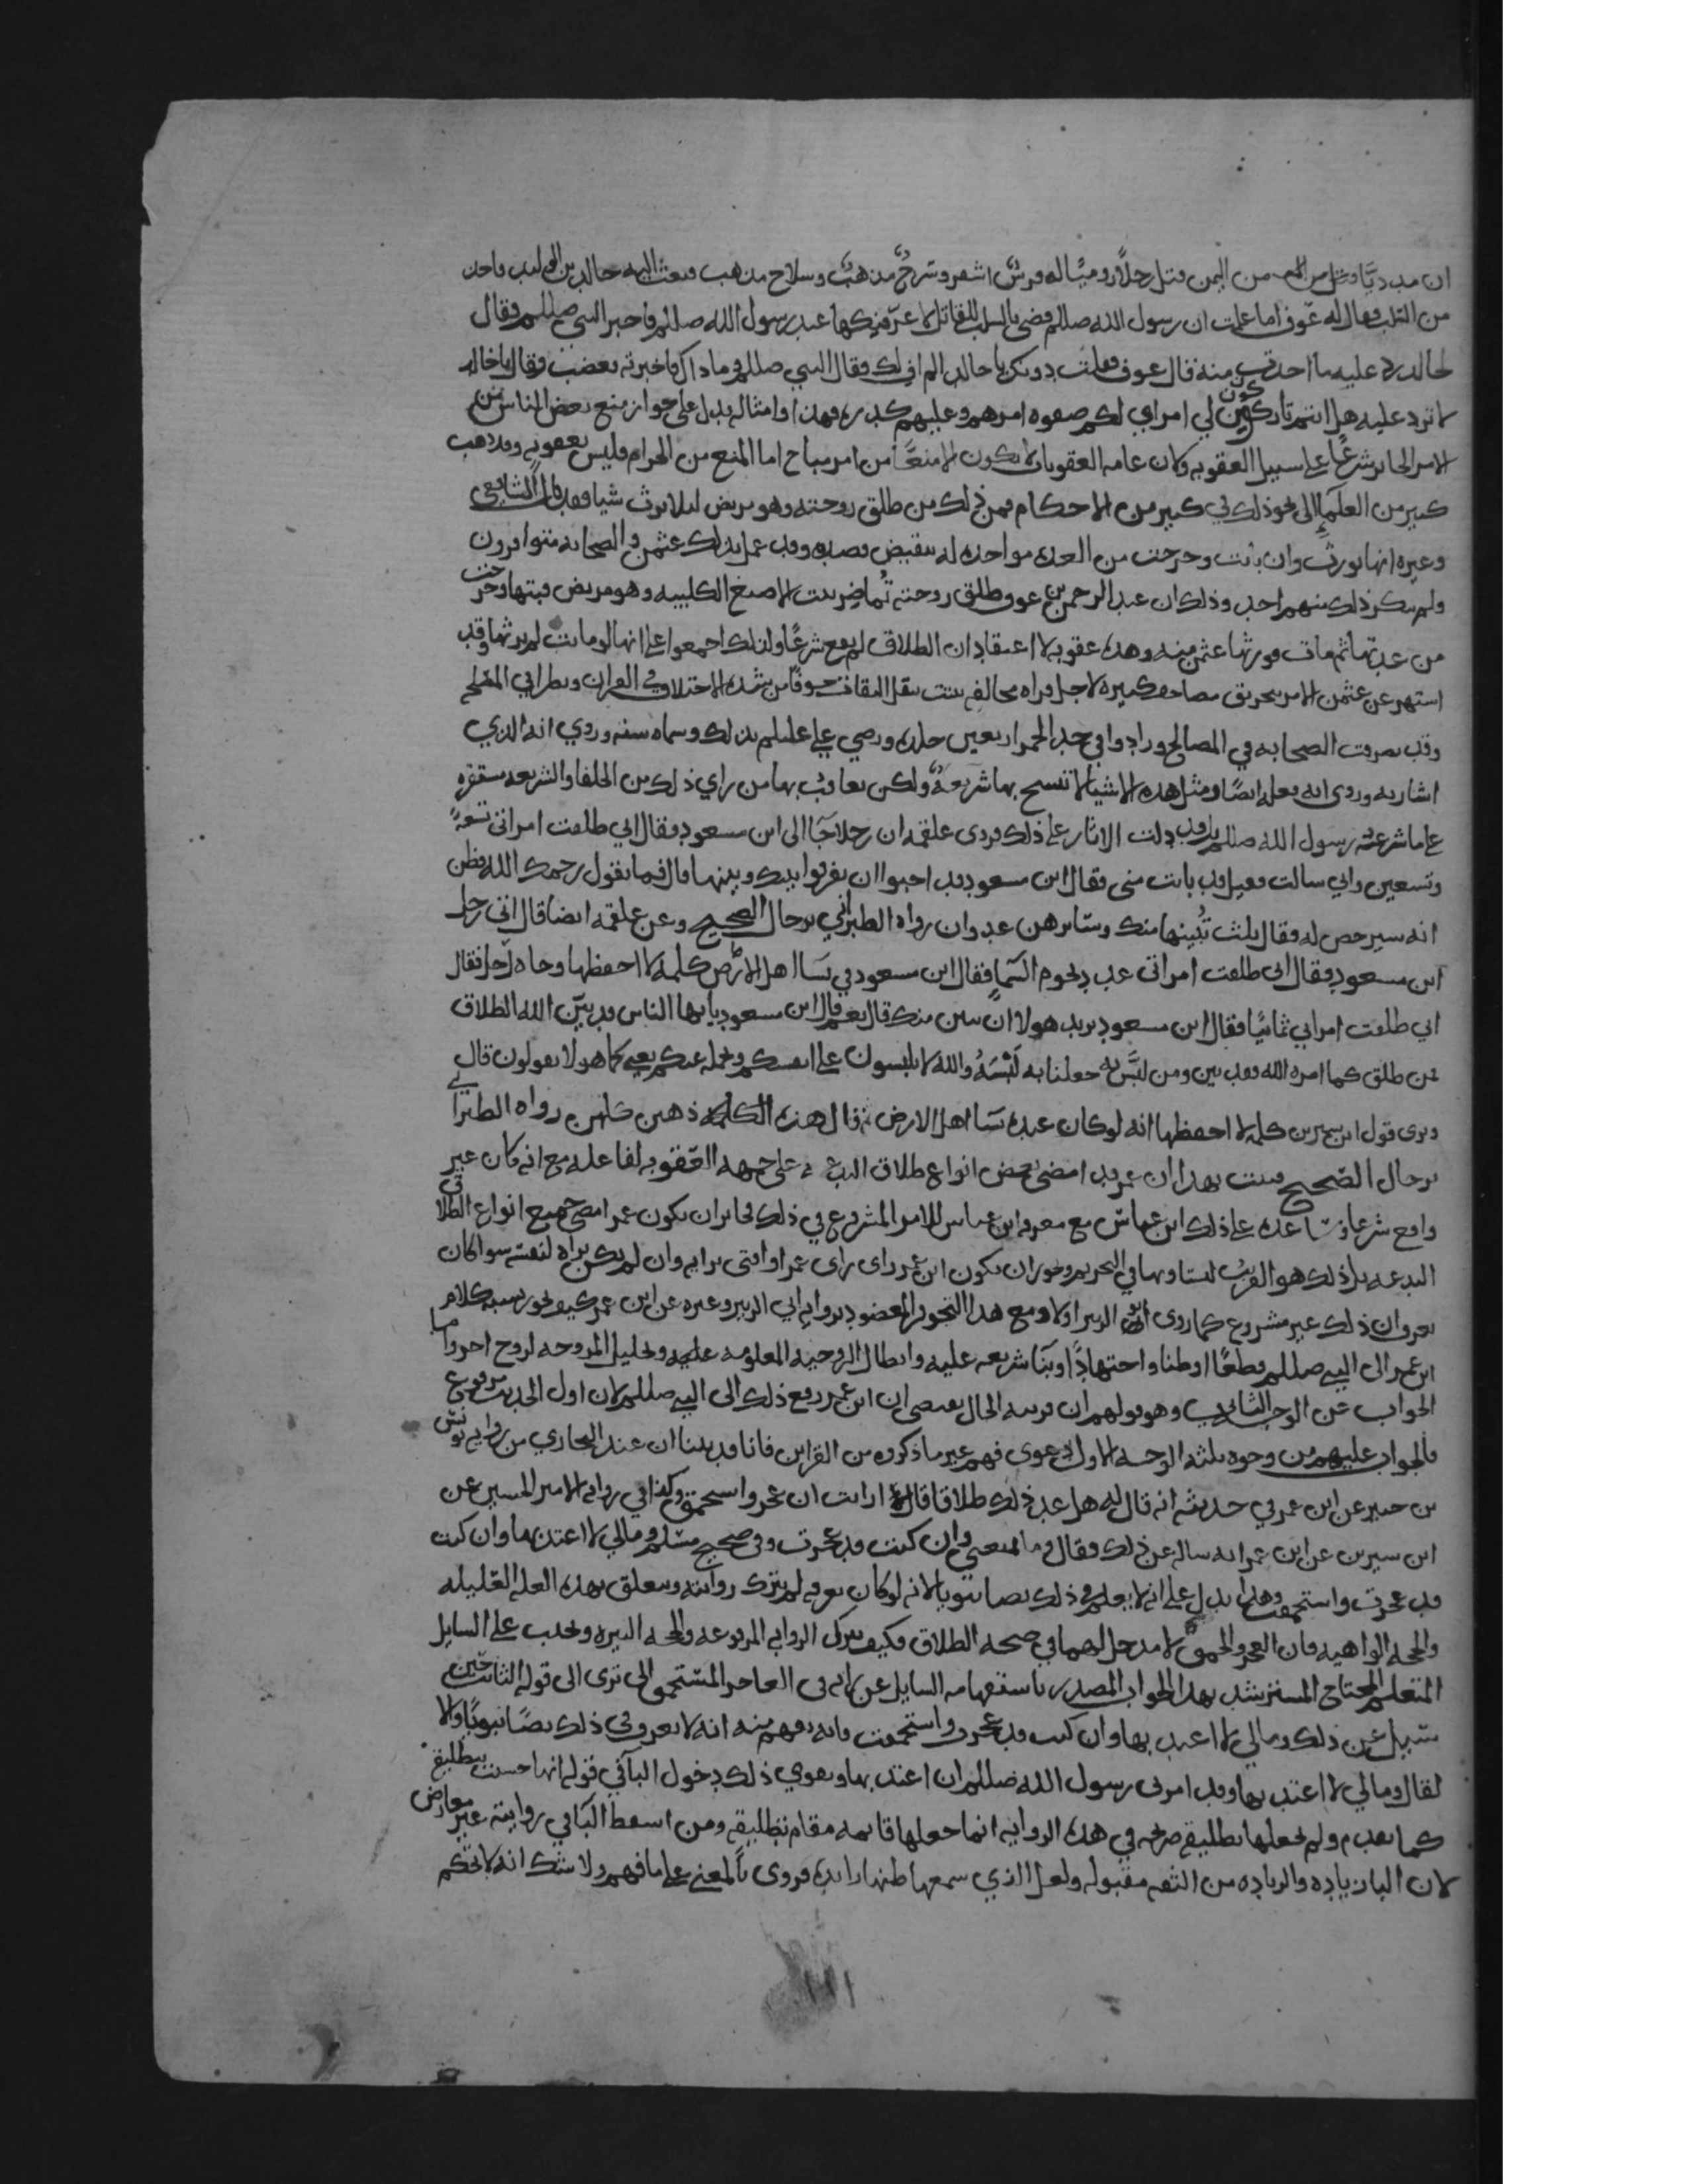 ان مدديا من اليمن قتل رجلا روميا له فرس اشقر وسرج مذهب وسلاح مذهب فبعث اليه خالد بن الوليد فاخذ
من السلب فقال له عوف اما علمت ان رسول الله صللم قضى بالسلب للقاتل لاعرفنكها عند رسول الله صللم فاخبر النبي صللم فقال
لخالد رد عليه ما اخذت منه قال عوف فقلت دونك يا خالد الم اف لك فقال النبي صللم وما ذاك فاخبرته فغضب وقال يا خالد
لا ترد عليه هل انتم تاركون لي امراي لكم صفوه امرهم وعليهم كدره فهذا وامثاله يدل على جواز منع بعض الناس من
الامر الجايز شرعا على سبيل العقوبه وكان عامه العقوبات لا تكون الا منعا من امر مباح اما المنع من الحرام فليس بعقوبه وقد ذهب
كثير من العلماء الى نحو ذلك في كثير من الاحكام فمن ذلك من طلق زوجته وهو مريض ليلا يرث شيا فقد قال الشافعي
وغيره انها تورث وان بانت وخرجت من العده مواخذه له بنقيض قصده وقد عمل بذلك عثمن والصحابه متوافرون
ولم ينكر ذلك منهم احد وذلك ان عبد الرحمن بن عوف طلق زوجته تماضر بنت الاصبغ الكلبيه وهو مريض فبتها وخرجت
من عدتها ثم مات فورثها عثمن منه وهذه عقوبه لا اعتقاد ان الطلاق لم يقع شرعا ولذلك اجمعوا على انها لو ماتت لم يرثها وقد
اشتهر عن عثمن الامر بحريق مصاحف كثيره لاجل قراه مخالفه بنقل الثقات خوفا من شده الاختلاف في القران
وقد تصرفت الصحابه في المصالح وزادوا في حد الخمر اربعين جلده ورضي علي عليلم بذلك وسماه سنه وروي انه الذي
اشار به وروى انه فعله ايضا ومثل هذه الاشيا لا تنسخ بها شريعة ولكن يعاقب بها من راي ذلك من الخلفا والشريعه مستقره
على ما شرعه رسول الله صللم وقد دلت الاثار على ذلك فروى علقمه ان رجلا جا الى ابن مسعود فقال اني طلقت امراتي تسعة
وتسعين واني سالت فقيل قد بانت منى فقال ابن مسعود قد احبوا ان يفرقوا بينك وبينها قال فما تقول رحمك الله فظن
انه سيرخص له فقال ثلث تبينها منك وسايرهن عدوان رواه الطبراني برجال الصحيح وعن علقمه ايضا قال اتى رجل
ابن مسعود فقال اني طلقت امراتي عدد نجوم السما فقال ابن مسعود في نسا اهل الارض كلمه لا احفظها وجاه رجل فقال
اني طلقت امراتي ثمانيا فقال ابن مسعود يريد هولا ان تبين منك قال نعم قال ابن مسعود يا يها الناس قد بين الله الطلاق
فمن طلق كما امره الله فقد بين ومن لبس به جعلنا به لبسه والله لا تلبسون على انفسكم ونحمله عنكم يعني كما هولا يقولون قال
ونرى قول ابن سيرين كلمه لا احفظها انه لو كان عنده نسا اهل الارض ثم قال هذه الكلمه ذهبن كلهن رواه الطبراني
برجال الصحيح فثبت بهذا ان عمر قد امضى بعض انواع طلاق البدعه على جهه العقوبه لفاعله مع انه كان غير
واقع شرعا وساعده على ذلك ابن عباس مع معرفه ابن عباس للامر المشروع في ذلك فجايز ان يكون عمر امضى جميع انواع الطلاق
البدعه بل ذلك هو القريب لتساويها في التحريم وجوز ان يكون ابن عمر راى راى عمر او افتى برايه وان لم يكن يراه لنفسه سوا كان
يعرف ان ذلك غير مشروع كما روى ابو الزبير اولا ومع هذا التجويز المعضود بروايه ابي الزبير وغيره عن ابن عمر كيف يجوز نسبه كلام
ابن عمر الى النبي صللم قطعا او ظنا واجتهادا وبنا شريعه عليه وابطال الزوجيه المعلومه عليه وتحليل المزوجه لزوج اخر واما
الجواب عن الوجه الثاني وهو قولهم ان قرينه الحال تقتضي ان ابن عمر رفع ذلك الى النبي صللم لان اول الحديث مرفوع
فالجواب عليهم من وجوه ثلثه الوجه الاول دعوى فهم غير ما ذكروه من القراين فانا قد بينا ان عند البخاري من روايه يونس
بن جبير عن ابن عمر في حديثه انه قال له هل عد ذلك طلاقا قال ارايت ان عجز واستحمق وكذا في روايه لانس بن سيرين عن
ابن سيرين عن ابن عمر انه ساله عن ذلك فقال وما يمنعني وان كنت قد عجزت وفي صحيح مسلم ومالي لا اعتد بها وان كنت
قد عجزت واستحمقت وهذا يدل على انه لا يعلم في ذلك نصا نبويا لانه لو كان يعرفه لم يترك روايته ويتعلق بهذه العله العليله
والحجه الواهيه فان العجز والحمق لا مدخل لهما في صحه الطلاق فكيف يترك الروايه المرفوعه والحجه النيره ويجيب على السايل
المتعلم المحتاج المسترشد بهذا الجواب المصدر باستفهامه السايل عن رايه في العاجز المستحمق الى ترى الى قوله الثابت حين
سيل عن ذلك ومالي لا اعتد بها وان كنت قد عجزت واستحمقت فانه يفهم منه انه لا يعرف في ذلك نصا نبويا والا
لقال ومالي لا اعتد بها وقد امرني رسول الله صللم ان اعتد بها ويقوي ذلك دخول البا في قوله انها حسبت بتطليقه
كما تقدم ولم يجعلها تطليقه صريحه في هذه الروايه انما جعلها قايمه مقام تطليقه ومن اسقط البا في روايته غير معارض
لان البا زياده والزياده من الثقه مقبوله ولعل الذي سمعها ظنها زايده فروى بالمعنى على ما فهم ولا شك انه لا يحكم
١١١